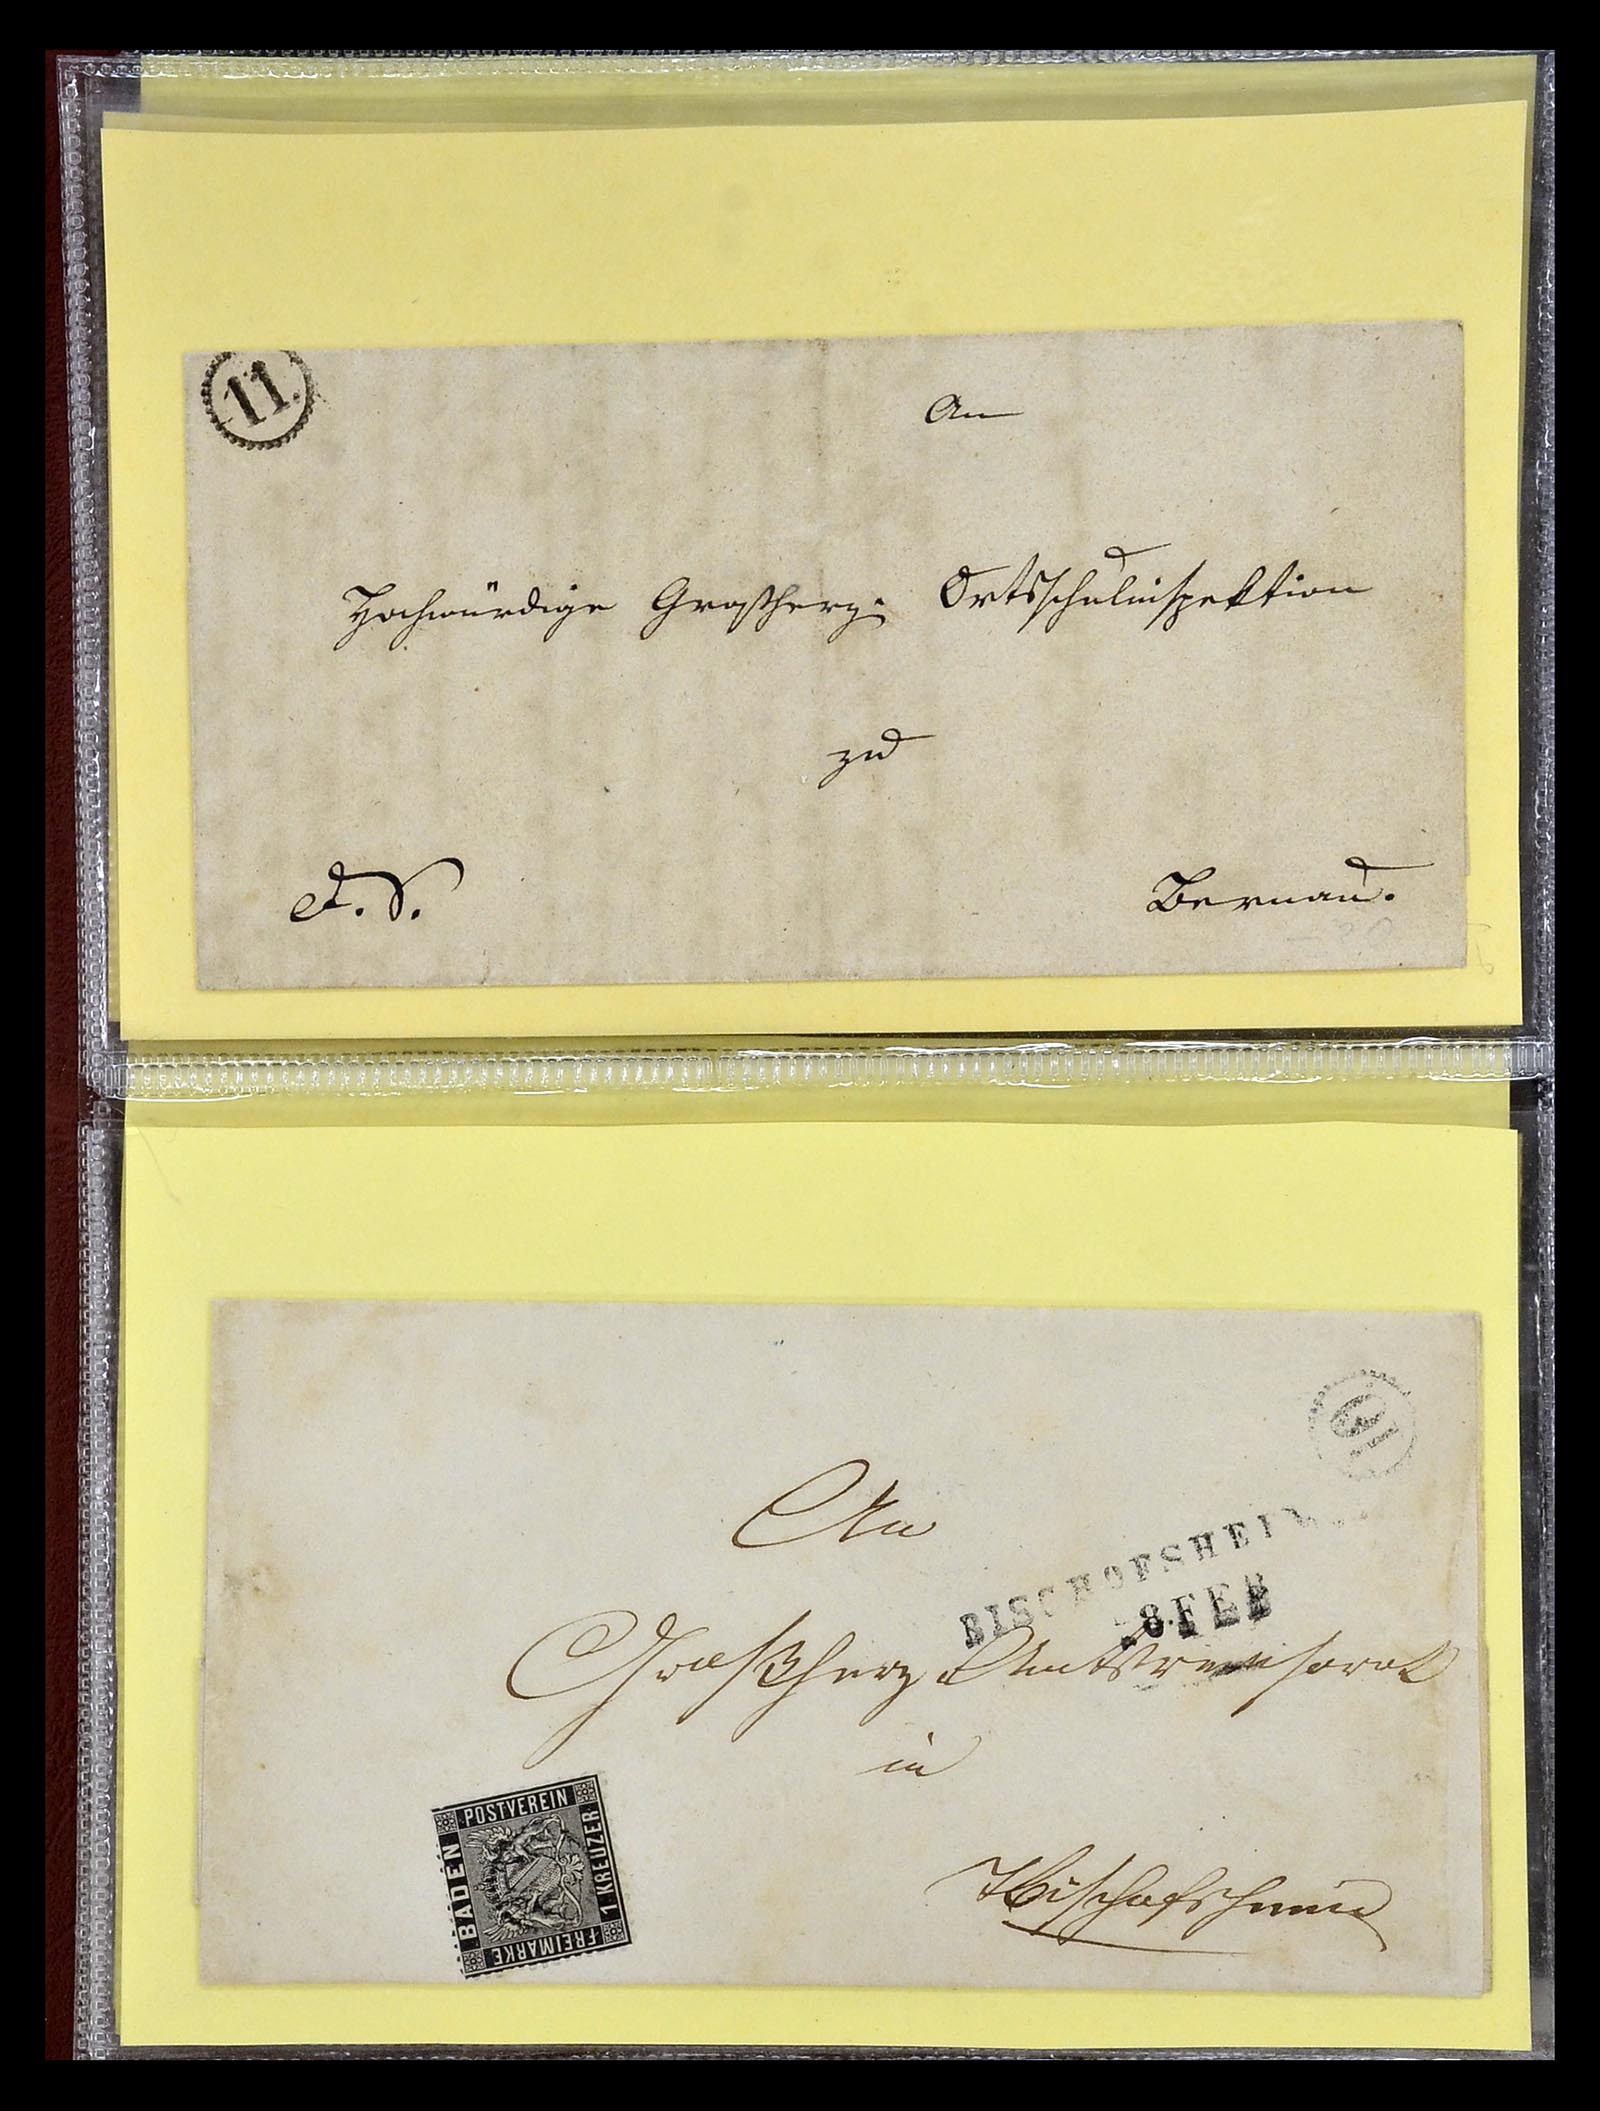 11.
An
Hochwürdige Großherz. Ortsschulinspektion
zu
D. S.
Bernau.
An
BISCHOFSHEIM
8 FEB
Großherz Amtsrevisorat
in
Bischofsheim
POSTVEREIN
BADEN
1 KREUZER
FREIMARKE